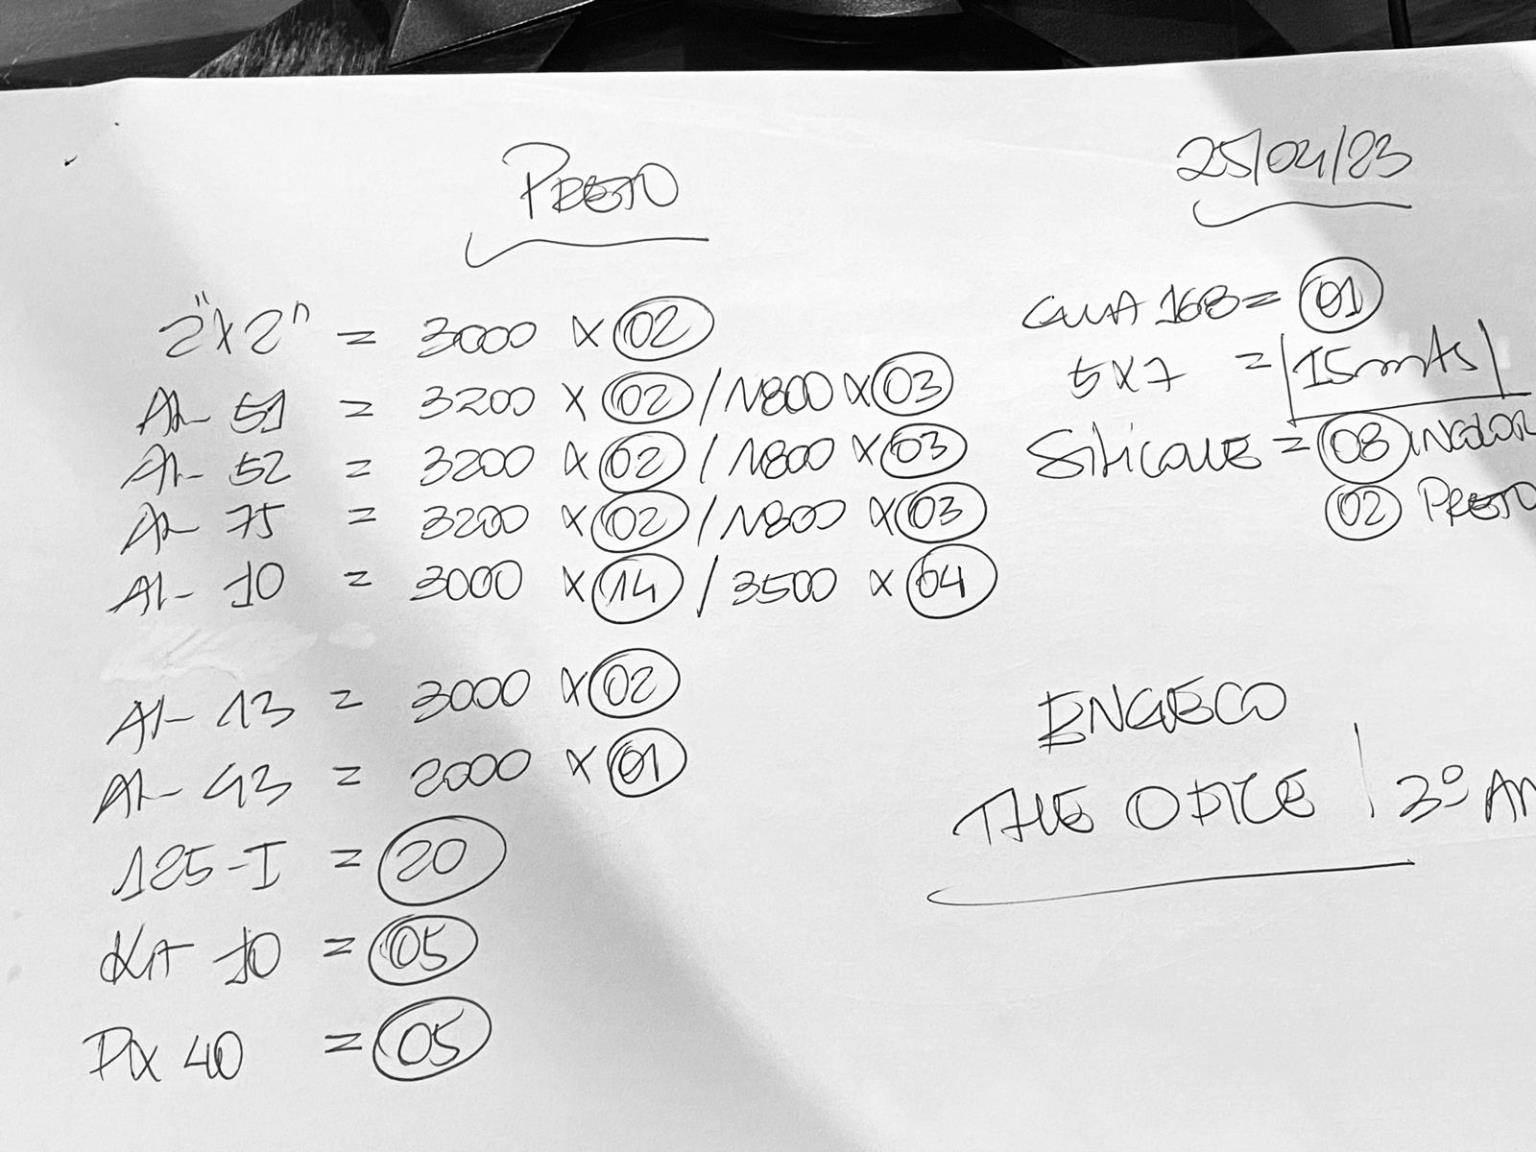 PRETO
25/04/23
2"x2" = 3000 x 02
AL- 51 = 3200 x 02 / 1800 x 03
AL- 52 = 3200 x 02 / 1800 x 03
AL- 75 = 3200 x 02 / 1800 x 03
AL- 10 = 3000 x 14 / 3500 x 04
AL- 13 = 3000 x 02
AL- 43 = 2000 x 01
125-I = 20
KIT 10 = 05
PX 40 = 05
168 = 01
5x7 = 15mts
SILICONE = 08 INCOLOR
02 PRETO
ENGECO
THE OFFICE | 3º AN